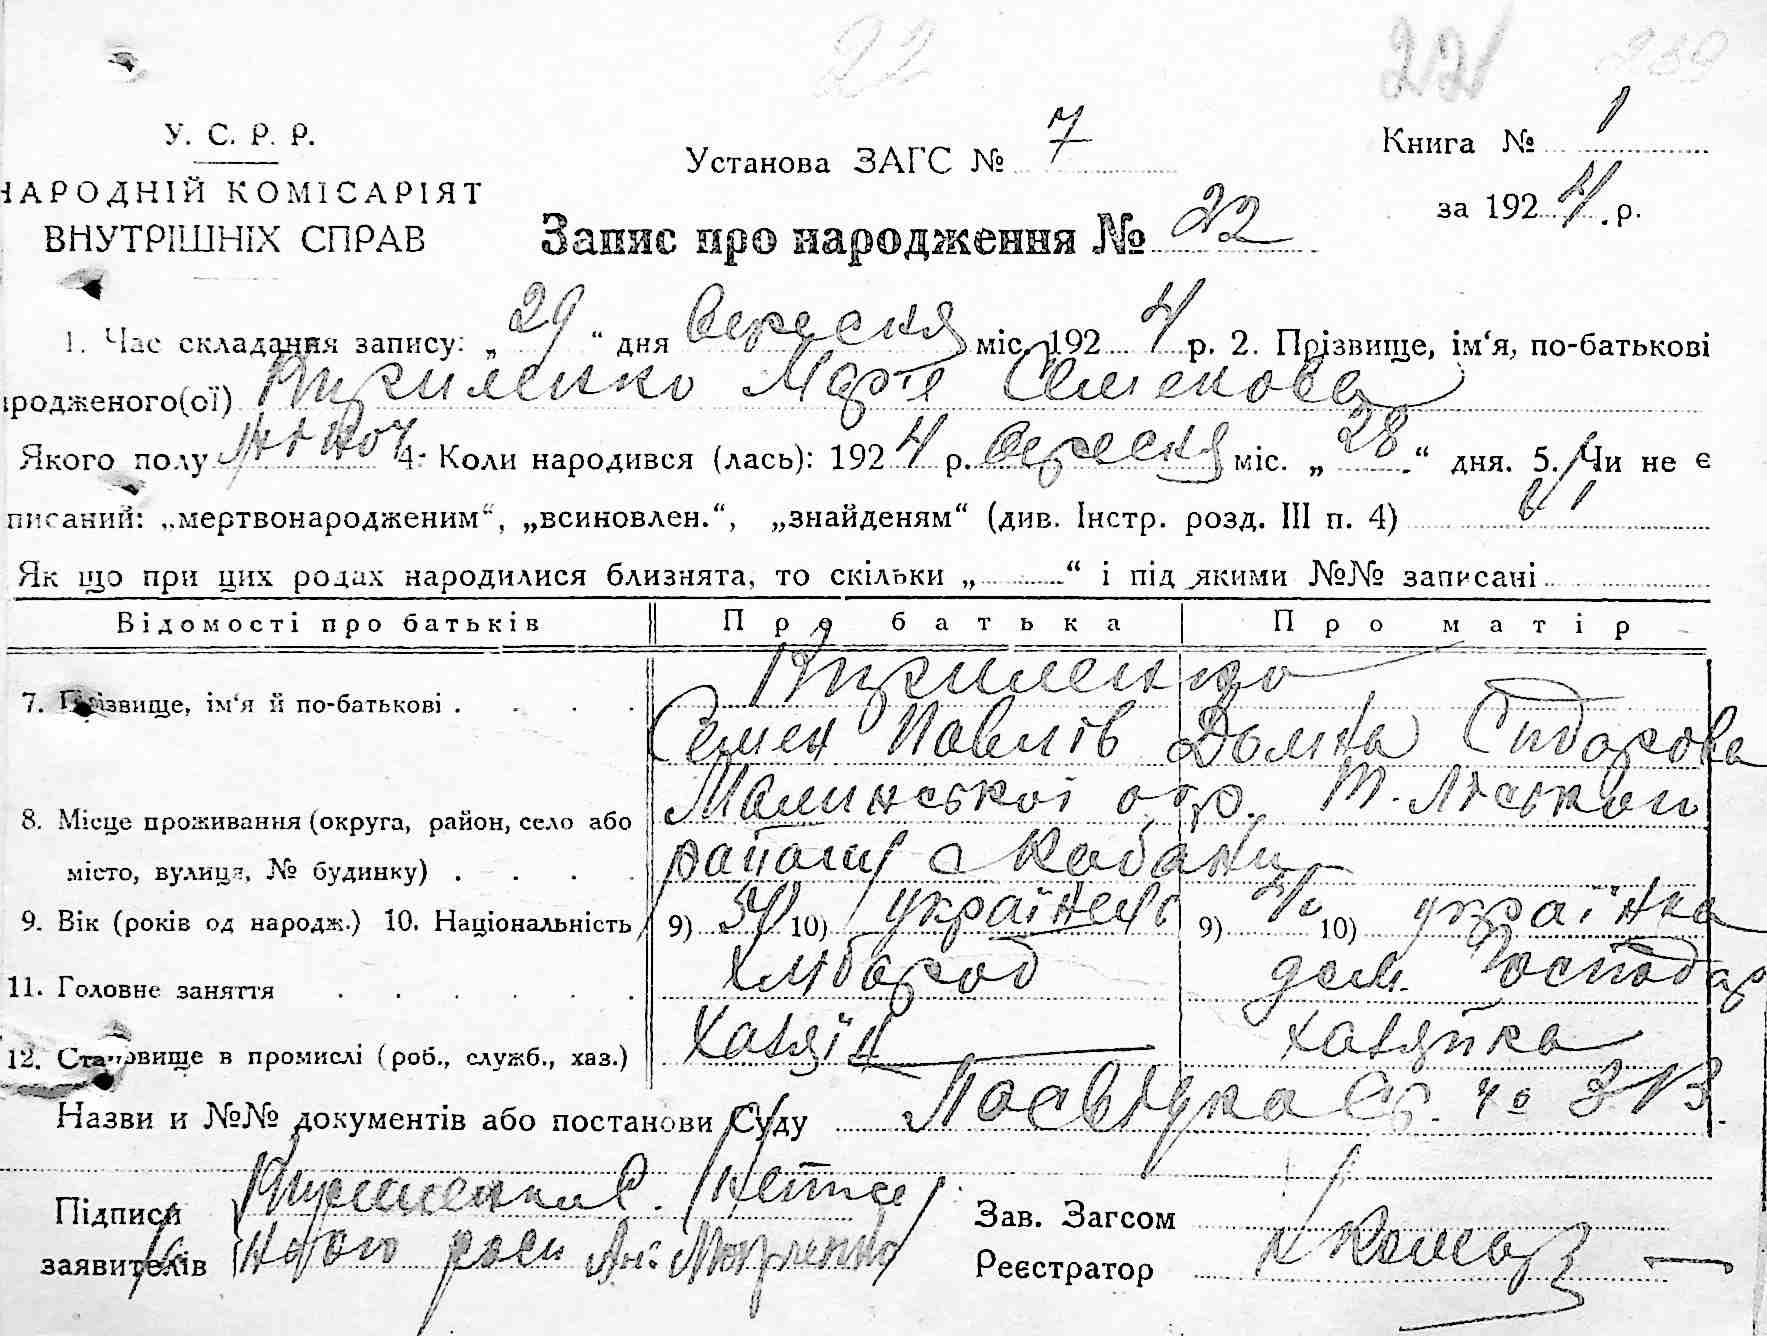 22 22 239
У. С. Р. Р.
НАРОДНІЙ КОМІСАРІЯТ
ВНУТРІШНІХ СПРАВ
Установа ЗАГС № 7
Книга № 1
за 1924 р.
Запис про народження № 22
1. Час складання запису: „29“ дня Вересня міс. 1924 р. 2. Прізвище, ім‘я, по-батькові
родженого(ої) Кириленко Марія Семенова
Якого полу жіноч 4. Коли народився (лась): 1924 р. Вересня міс. „28“ дня. 5. Чи не є
писаний: „мертвонародженим“, „всиновлен.“, „знайденям“ (див. Інстр. розд. III п. 4)
Як що при цих родах народилися близнята, то скільки „ “ і під якими №№ записані
Відомості про батьків Про батька Про матір
7. Прізвище, ім‘я й по-батькові Кириленко
Семен Павлів Домка Сидорова
8. Місце проживання (округа, район, село або Малинської окр.
місто, вулиця, № будинку) району с Кабани
9. Вік (років од народж.) 10. Національність 9) 10) українець 9) 10) українка
11. Головне заняття хлібороб дом. господар
12. Становище в промислі (роб., служб., хаз.) хазяїн хазяйка
Назви и №№ документів або постанови Суду Посвідка
Підписи Кириленко С.
заявителів
Зав. Загсом
Реєстратор